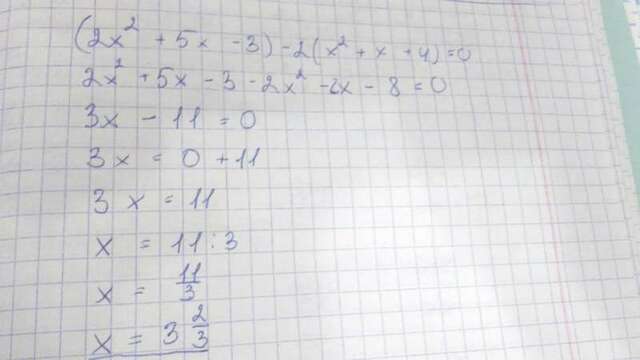 (2x² + 5x - 3) - 2(x² + x + 4) = 0
2x² + 5x - 3 - 2x² - 2x - 8 = 0
3x - 11 = 0
3x = 0 + 11
3x = 11
x = 11 : 3
x = 11/3
x = 3 2/3